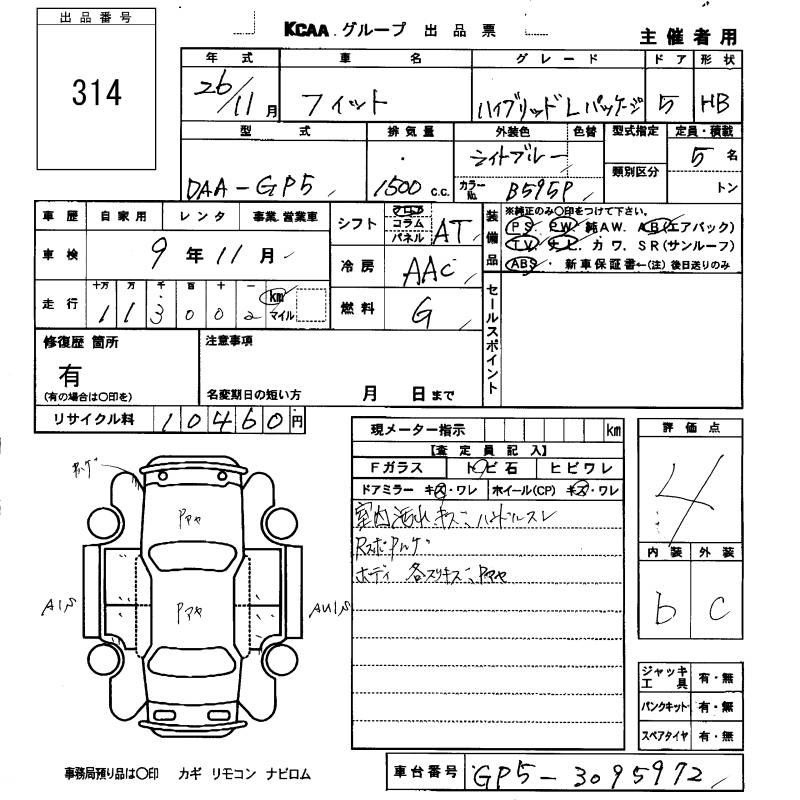 出品番号
314
KCAA グループ 出品票
主催者用
年式 車名 グレード ドア 形状
26/11月 フィット ハイブリッド Lパッケージ 5 HB
型式 排気量 外装色 色替 型式指定 定員・積載
DAA-GP5 1500 c.c. ライトブルー 5名
カラーNo. B595P 類別区分 トン
車歴 自家用 レンタ 事業.営業車
車検 9年11月
走行 十万 万 千 百 十 一 km マイル
113002
シフト フロア コラム パネル AT
冷房 AAC
燃料 G
装備品 ※純正のみ○印をつけて下さい。
PS. PW. 純AW. AB(エアバック)
TV. ナビ. カワ. SR(サンルーフ)
ABS 新車保証書←(注) 後日送りのみ
セールスポイント
修復歴 箇所
有
(有の場合は○印を)
注意事項
名変期日の短い方 月 日まで
リサイクル料 10460円
現メーター指示 km
【査定員記入】
Fガラス トビ石 ヒビワレ
ドアミラー キズ・ワレ ホイール(CP) キズ・ワレ
室内汚れキズ ハンドルスレ
ボディ 各スリキズ Pマヤ
評価点
4
内装 外装
b c
Pマヤ
A1S
Pマヤ
ジャッキ工具 有・無
パンクキット 有・無
スペアタイヤ 有・無
事務局預り品は○印 カギ リモコン ナビロム
車台番号 GP5-3095972